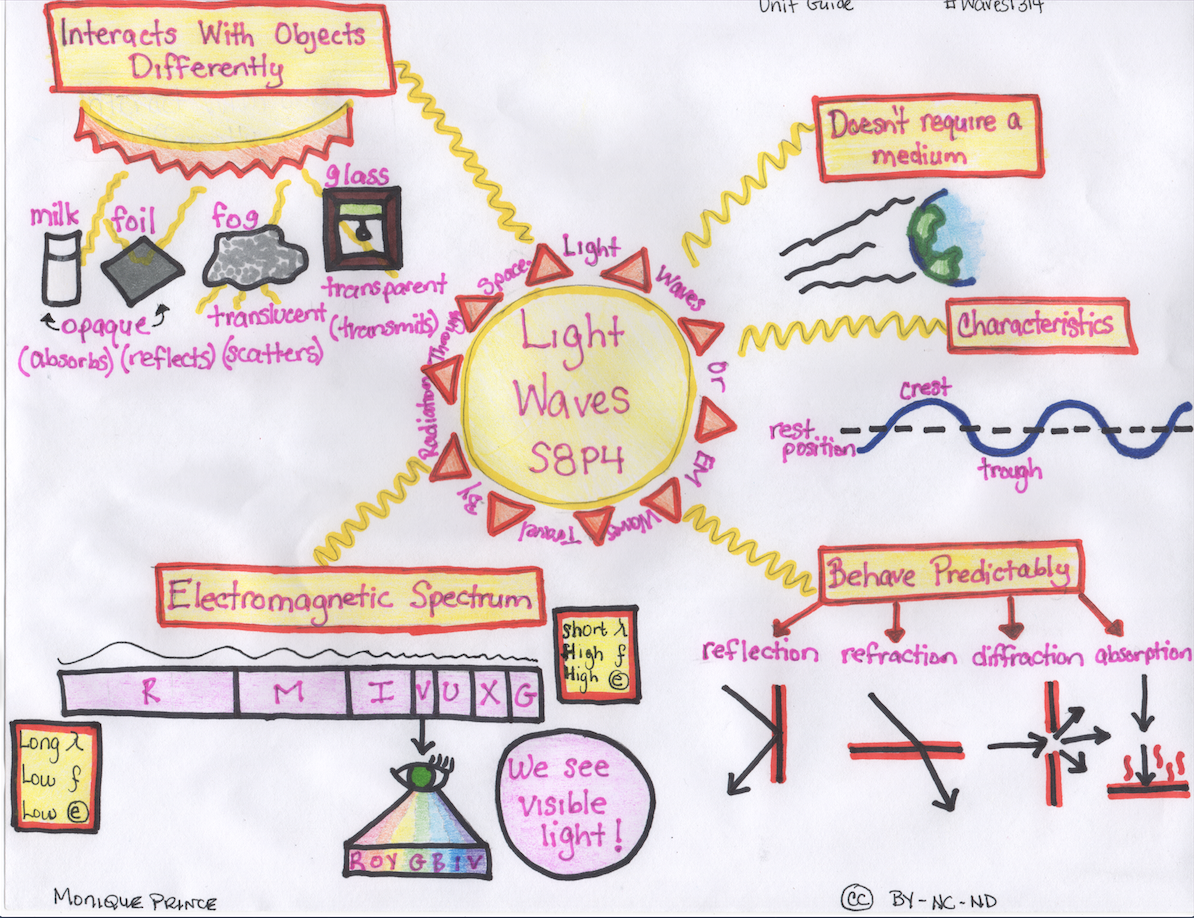 Unit Guide #Waves1314
Interacts With Objects
Differently
milk
foil
fog
glass
opaque
(absorbs) (reflects)
translucent
(scatters)
transparent
(transmits)
Doesn't require a
medium
Characteristics
crest
rest
position
trough
Light
Waves
S8P4
Light Waves or EM Waves Travel By Radiation Through Space.
Electromagnetic Spectrum
short λ
High f
High e
R M I V U X G
Long λ
Low f
Low e
R O Y G B I V
We see
visible
light!
Behave Predictably
reflection refraction diffraction absorption
Monique Prince
cc BY-NC-ND